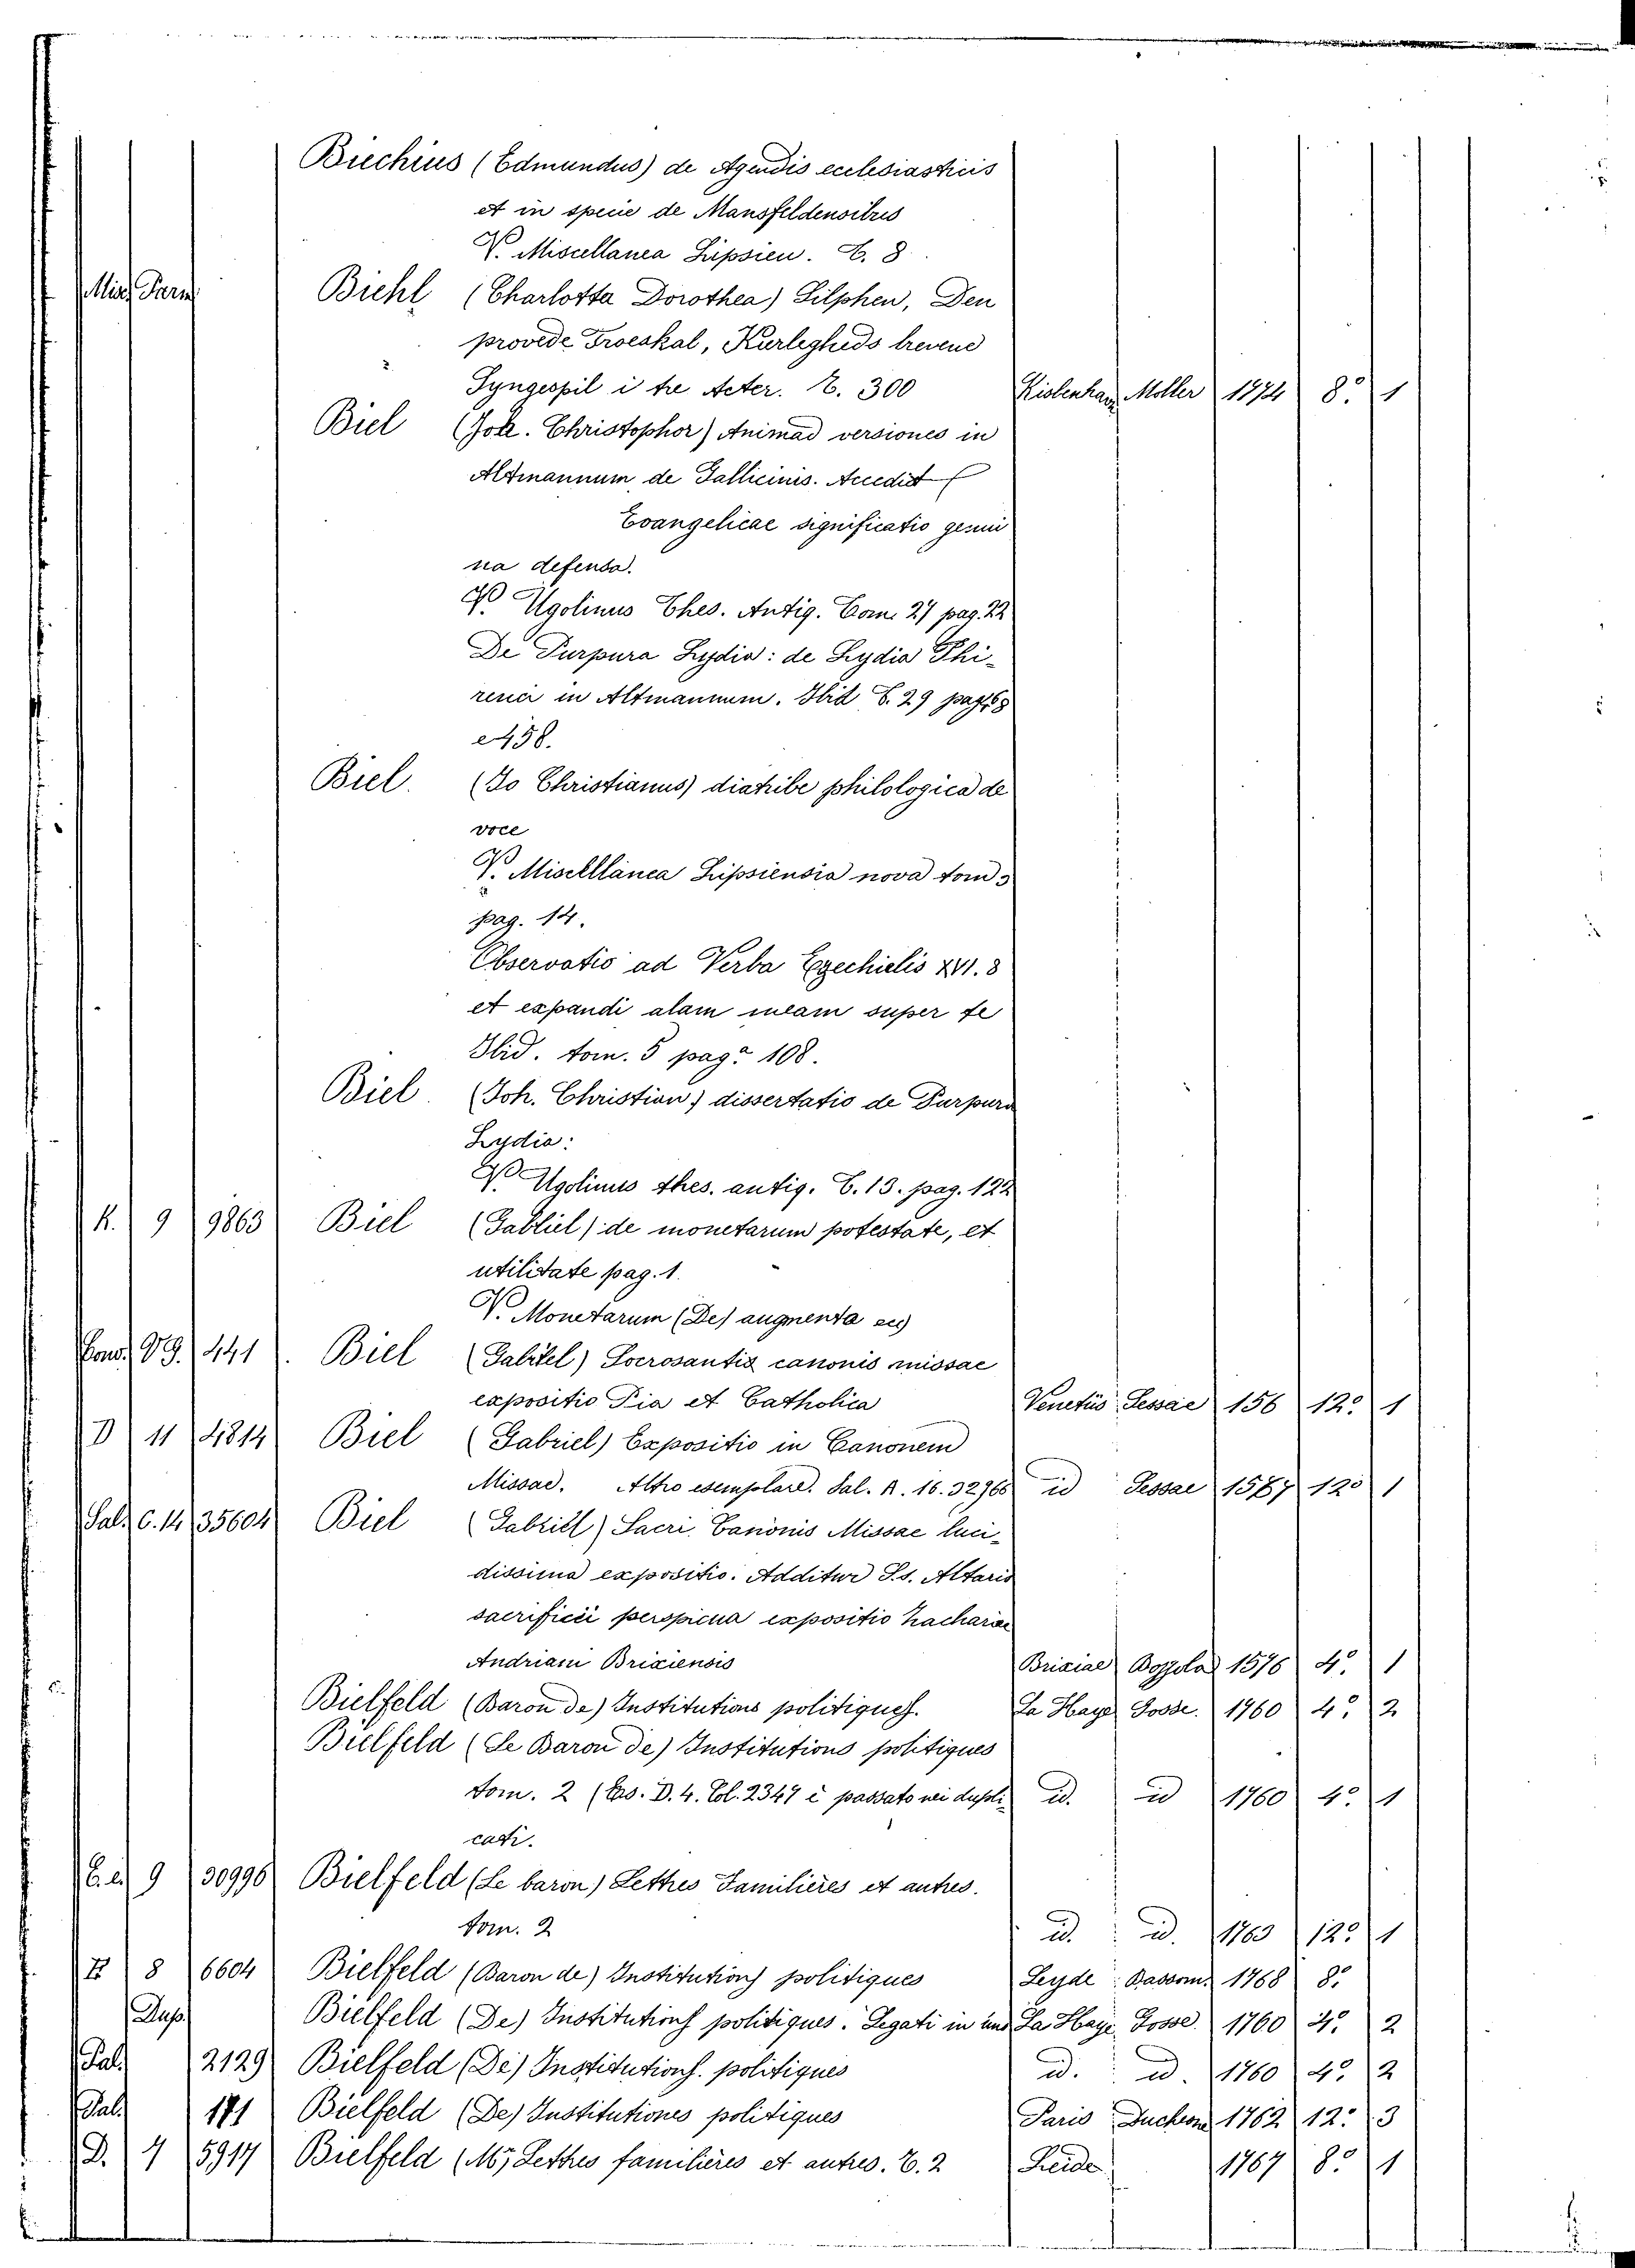 Biechius (Edmundus) de Agendis ecclesiasticis
et in specie de Mansfeldensibus
V. Miscellanea Lipsien. T. 8.
Misc Parm Biehl (Charlotta Dorothea) Silphen, Den
provede Troeskal, Kurligheds brevene
Syngespil i tre Acter. T. 300 Kiobenhavn Moller 1774 8.° 1
Biel (Joh. Christophor) Animad versiones in
Altmannum de Gallicinis. Accedit
Evangelicae significatio genui
na defensa.
V. Ugolinus Thes. Antig. Tom. 27 pag. 22
De Purpura Lydia: de Lydia Thi-
renci in Altmannum. Ibid T. 29 pag
e 458.
Biel. (Jo Christianus) diatribe philologica de
voce
V. Miscelllanea Lipsiensia nova tom 5
pag. 14.
Observatio ad Verba Ezechielis XVI. 8
et expandi alam meam super te
Ibid. tom. 5 pag.ª 108.
Biel. (Joh. Christian) dissertatio de Purpura
Lydia:
V. Ugolinus thes. antig. T. 13. pag. 122
K. 9 9863 Biel (Gabliel) de monetarum potestate, et
utilitate pag. 1.
V. Monetarum (De) augmenta
Cons. VG. 441. Biel (Gabriel) Socrosantia canonis missae
expositio Pia et Catholica Venetiis Sessae 156 12.° 1
D 11 4814 Biel (Gabriel) Expositio in Canonem
Missae. Altro esemplare. Sal. A. 16. 32966 id Sessae 1587 12° 1
Sal. C. 14 35604 Biel (Gabriel) Sacri Canonis Missae luci-
dissima expositio. Additur S.S. Altaris
sacrificii perspicua expositio Zachariae
Andriani Brixiensis Brixiae Bozzola 1576 4.° 1
Bielfeld (Baron de) Institutions politiques. La Haye Gosse. 1760 4.° 2
Bielfeld (Le Baron de) Institutions politiques
tom. 2 (Es. D. 4. Col. 2347 è passato nei dupli id. id 1760 4.° 1
cati.
9 30996 Bielfeld (Le baron) Lettres Familières et autres.
tom. 2 id. id. 1763 12.° 1
E 8 6604 Bielfeld (Baron de) Institutions politiques Leyde Bassom. 1768 8.°
Dup. Bielfeld (De) Institutions politiques. Legati in una La Haye Gosse. 1760 4.° 2
Pal. 2129 Bielfeld (De) Institutions. politiques id. id. 1760 4.° 2
Pal. 171 Bielfeld (De) Institutiones politiques Paris Duchene 1762 12.° 3
D. 4 5917 Bielfeld (Mr) Lettres familières et autres. T. 2 Leide 1767 8.° 1